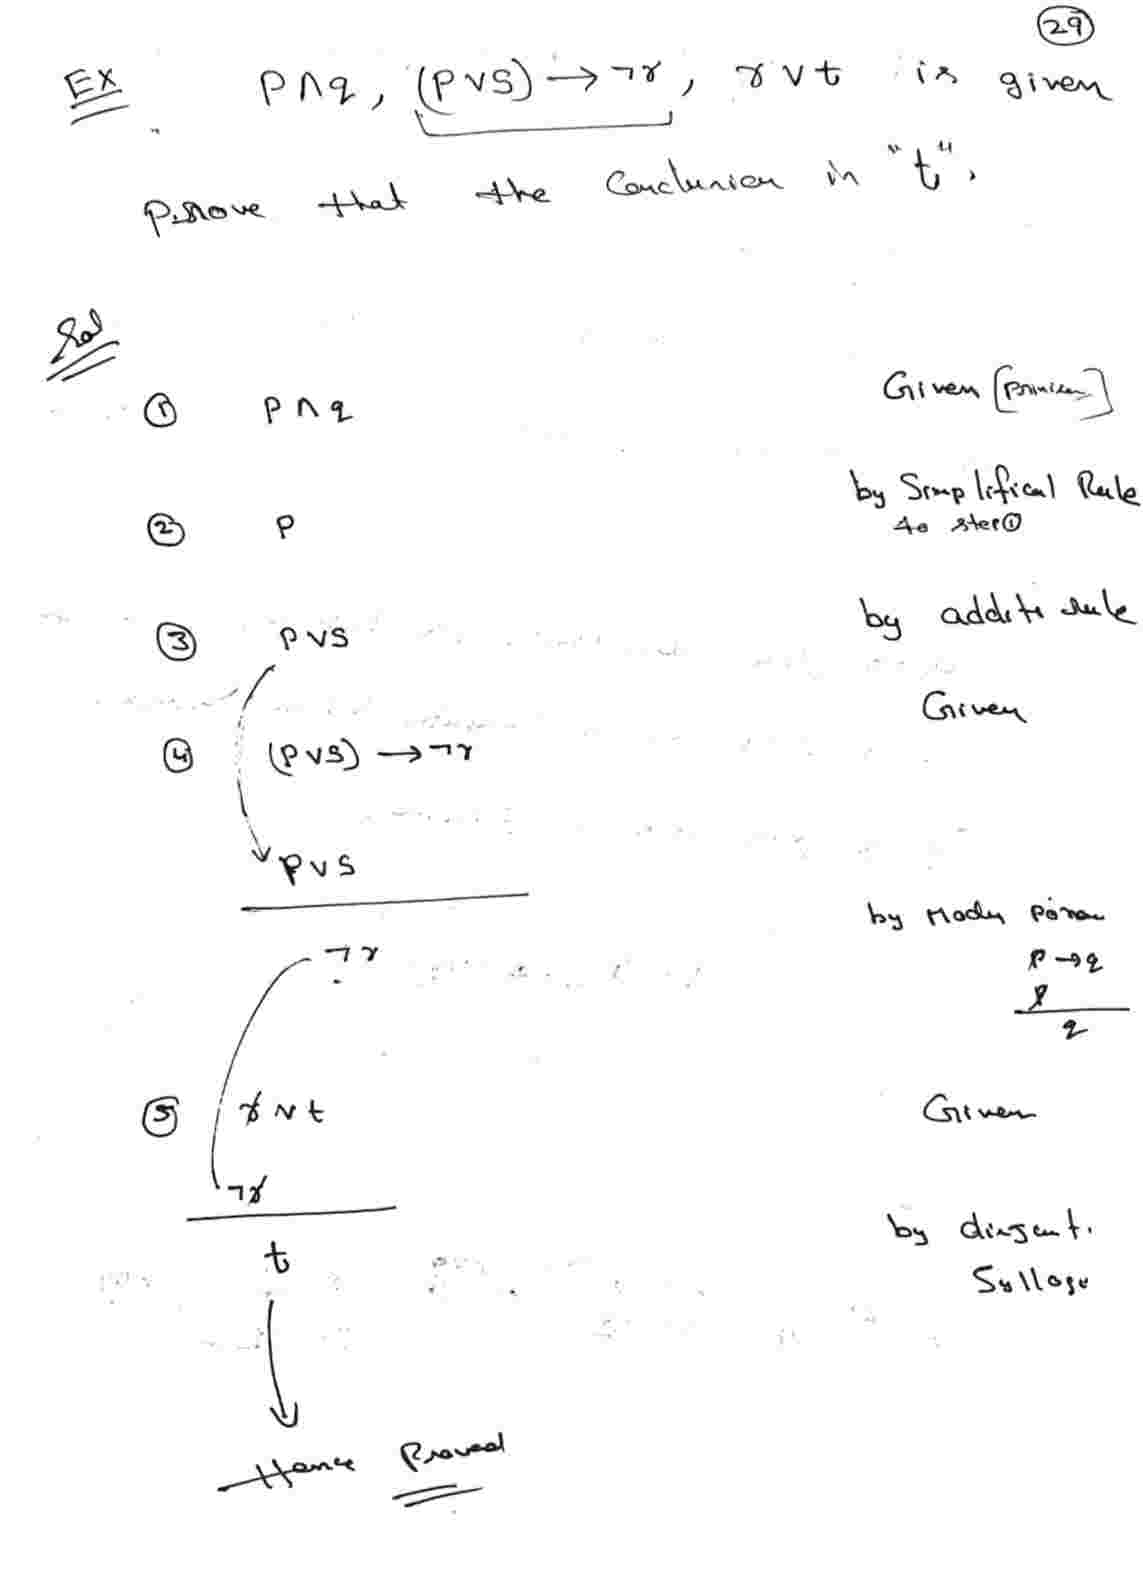 29
Ex P∧q, (P∨S) → ¬r, r∨t is given
Prove that the Conclusion is "t".
Sol
① P∧q Given [Primises]
② P by Simplifical Rule
to step①
③ P∨S by additi rule
④ (P∨S) → ¬r Given
P∨S
¬r by Modus Ponen
P→q
P
q
⑤ r∨t Given
¬r
t by disjunt.
Sylloge
Hence Proved